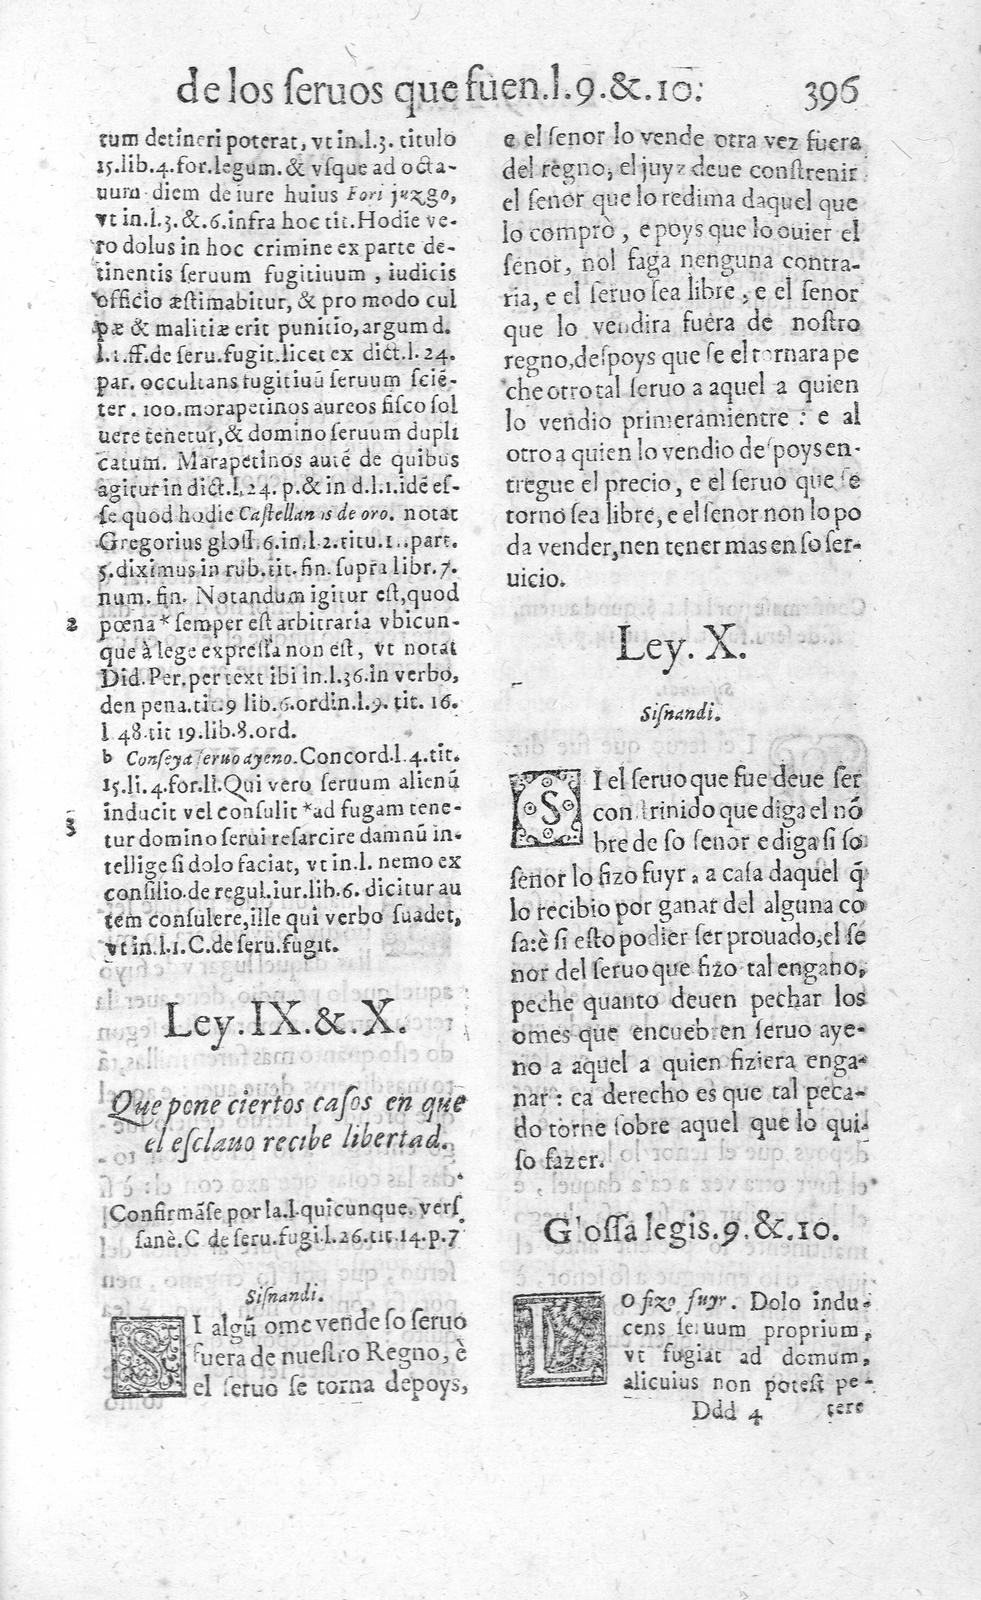 de los ſeruos que fuen.l.9.&.10: 396
tum detineri poterat, vt in.l.3. titulo
15.lib.4.for.legum.& vſque ad octa-
uum diem de iure huius Fori juzgo,
vt in.l.3.&.6.infra hoc tit.Hodie ve-
ro dolus in hoc crimine ex parte de-
tinentis ſeruum fugitiuum, iudicis
officio æſtimabitur, & pro modo cul
pæ & malitiæ erit punitio, argum d.
l.1.ff.de ſeru.fugit.licet ex dict.l.24.
par. occultans fugitiuū ſeruum ſciē-
ter. 100.morapetinos aureos fiſco ſol
uere tenetur,& domino ſeruum dupli
catum. Marapetinos autē de quibus
agitur in dict.l.24. p.& in d.l.1.idē eſ-
ſe quod hodie Caſtellanos de oro. notat
Gregorius gloſſ.6.in.l.2.titu.1..part.
5.diximus in rub.tit.fin. ſupra libr.7.
num. fin. Notandum igitur eſt,quod
2 pœna * ſemper eſt arbitraria vbicun-
que à lege expreſſa non eſt, vt notat
Did.Per.per text ibi in.l.36.in verbo,
den pena.tit.9 lib.6.ordin.l.9. tit. 16.
l 48.tit 19.lib.8.ord.
b Conſeya ſeruo ayeno.Concord.l.4.tit.
15.li.4.for.ll.Qui vero ſeruum alienū
3 inducit vel conſulit *ad fugam tene-
tur domino ſerui reſarcire damnū in-
tellige ſi dolo faciat, vt in.l. nemo ex
conſilio.de regul.iur.lib.6. dicitur au
tem conſulere,ille qui verbo ſuadet,
vt in.l.1.C.de ſeru.fugit.
Ley.IX.&.X.
Que pone ciertos caſos en que
el eſclauo recibe libertad.
Confirmāſe por la.l.quicunque. verſ
ſanè.C de ſeru.fugi.l.26.tit.14.p.7
Siſnandi.
SI algū ome vende ſo ſeruo
fuera de nueſtro Regno, è
el ſeruo ſe torna depoys,
e el ſenor lo vende otra vez fuera
del regno, el juyz deue conſtrenir
el ſenor que lo redima daquel que
lo comprò, e poys que lo ouier el
ſenor, nol faga nenguna contra-
ria, e el ſeruo ſea libre, e el ſenor
que lo vendira fuera de noſtro
regno,deſpoys que ſe el tornara pe
che otro tal ſeruo a aquel a quien
lo vendio primeramientre: e al
otro a quien lo vendio deſpoys en-
tregue el precio, e el ſeruo que ſe
torno ſea libre, e el ſenor non lo po
da vender,nen tener mas en ſo ſer-
uicio.
Ley. X.
Siſnandi.
SI el ſeruo que fue deue ſer
conſtrinido que diga el nō
bre de ſo ſenor e diga ſi ſo
ſenor lo fizo fuyr, a caſa daquel q̄
lo recibio por ganar del alguna co
ſa:è ſi eſto podier ſer prouado,el ſe
nor del ſeruo que fizo tal engano,
peche quanto deuen pechar los
omes que encuebren ſeruo aye-
no a aquel a quien fiziera enga-
nar: ca derecho es que tal peca-
do torne ſobre aquel que lo qui-
ſo fazer.
Gloſſa legis.9.&.10.
LO fizo fuyr. Dolo indu-
cens ſeruum proprium,
vt fugiat ad domum,
alicuius non poteſt pe-
Ddd 4 tere